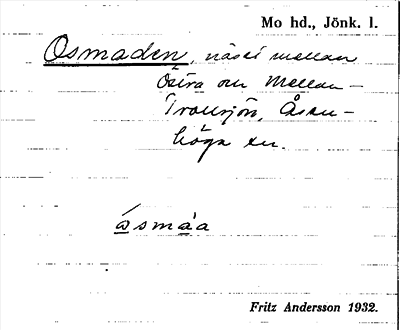 Mo hd., Jönk. l.
Osmaden, näset mellan
Östra och Mellan-
Transjön, Åsen-
höga sn.
åsmáa
Fritz Andersson 1932.